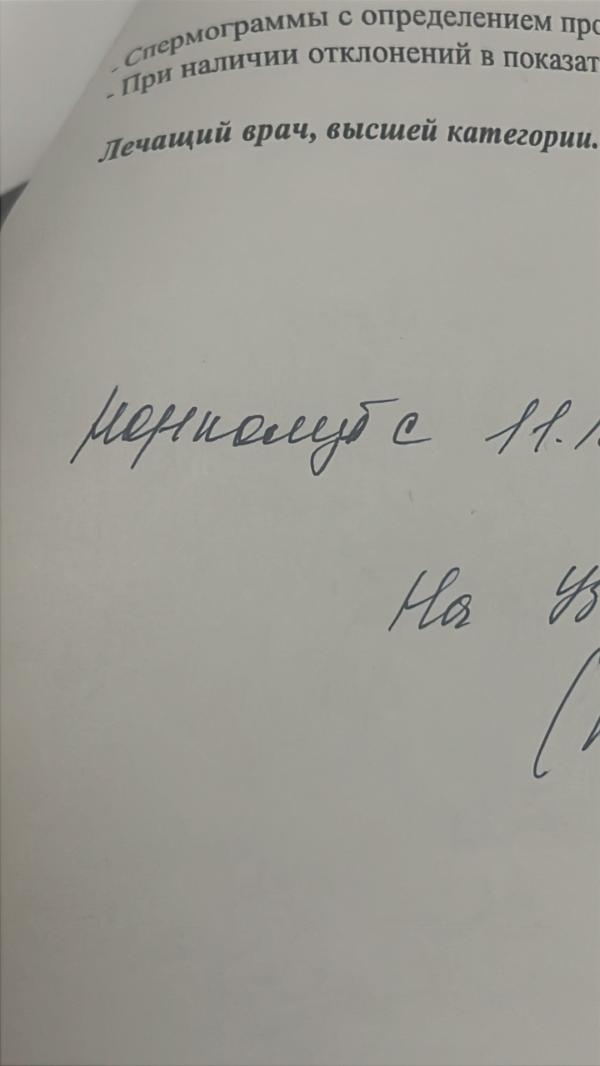 - Спермограммы с определением про
- При наличии отклонений в показат
Лечащий врач, высшей категории.
с 11.1
На Уз
(